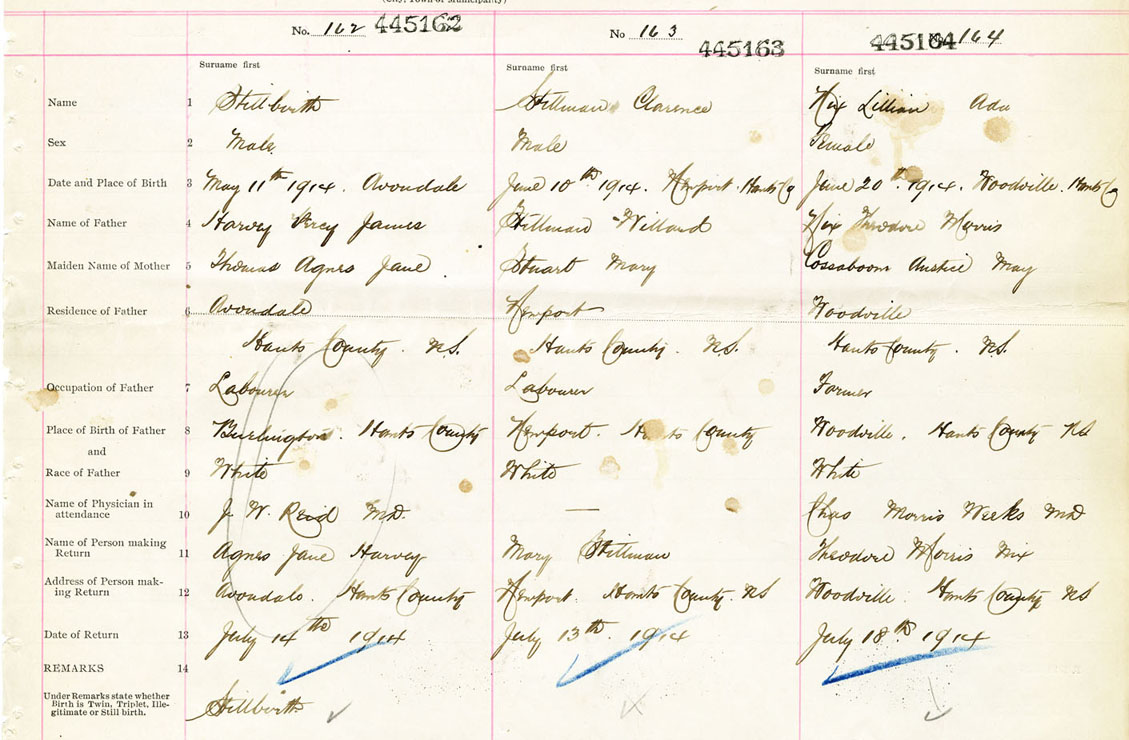 (City, Town or Municipality)
No. 162 445162 No 163 445163 445164 No. 164
Surname first Surname first Surname first
Name 1 Stillbirth Stillman Clarence Nix Lillian Ada
Sex 2 Male. Male Female
Date and Place of Birth 3 May 11th 1914. Avondale June 10th 1914. Newport. Hants Co June 20th 1914. Woodville. Hants Co
Name of Father 4 Harvey Percy James Stillman Willard Nix Theodore Morris
Maiden Name of Mother 5 Thomas Agnes Jane. Stuart Mary Cossaboom May
Residence of Father 6 Avondale Newport Woodville
Hants County. NS. Hants County. NS. Hants County. NS.
Occupation of Father 7 Labourer Labourer Farmer
Place of Birth of Father 8 Burlington. Hants County Newport. Hants County Woodville. Hants County NS
and
Race of Father 9 White White White
Name of Physician in
attendance 10 J. W. Reid MD. — Chas Morris Weeks MD
Name of Person making
Return 11 Agnes Jane Harvey Mary Stillman Theodore Morris Nix
Address of Person mak-
ing Return 12 Avondale. Hants County Newport. Hants County. NS Woodville. Hants County NS
Date of Return 13 July 14th 1914 July 13th. 1914 July 18th 1914
REMARKS 14
Under Remarks state whether
Birth is Twin, Triplet, Ille-
gitimate or Still birth. Stillbirth.